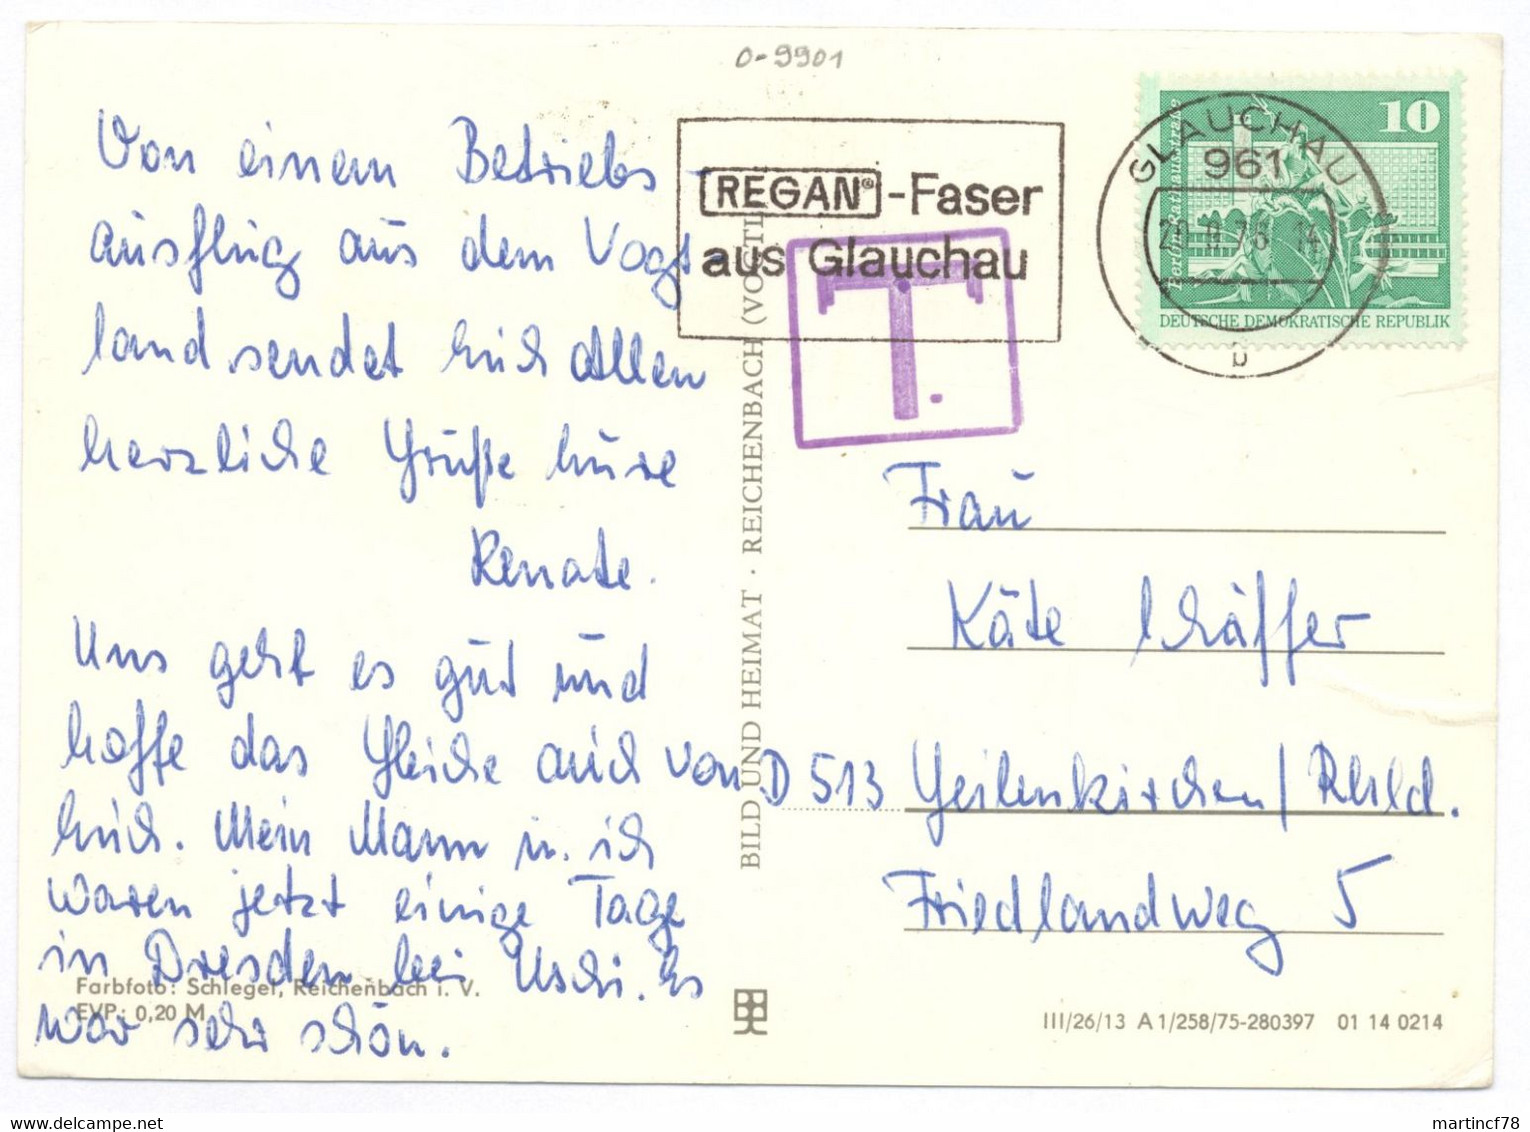 0-9901
Von einem Betriebs-
ausflug aus dem Vogt-
land sendet Euch Allen
herzliche Grüße Eure
Renate.
Uns geht es gut und
hoffe das Gleiche auch von
Euch. Mein Mann u. ich
waren jetzt einige Tage
in Dresden bei Uschi. Es
war sehr schön.
Farbfoto: Schlegel, Reichenbach i. V.
EVP: 0,20 M
BILD UND HEIMAT · REICHENBACH (VOGTL
REGAN® -Faser
aus Glauchau
T.
GLAUCHAU
961
76 14
b
10
DEUTSCHE DEMOKRATISCHE REPUBLIK
Frau
Käte Schäffer
D 513 Geilenkirchen/Rhld.
Friedlandweg 5
III/26/13 A 1/258/75-280397 01 14 0214
martincf78